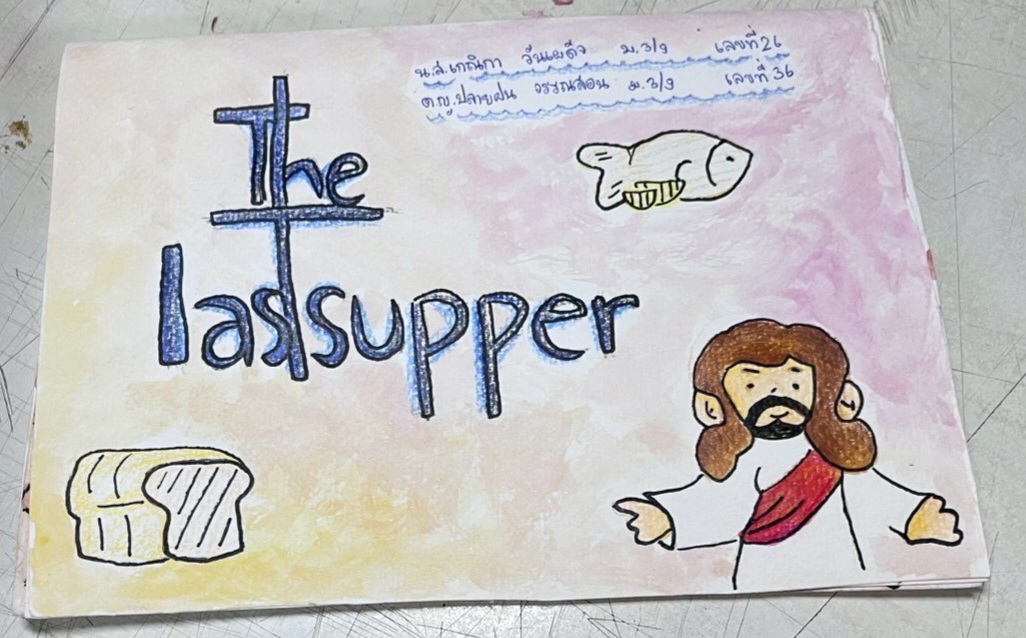 น.ส.เกณิกา วันเผด็จ ม.3/9 เลขที่ 26
ด.ญ.ปลายฝน วรรณสอน ม.3/9 เลขที่ 36
The
last supper